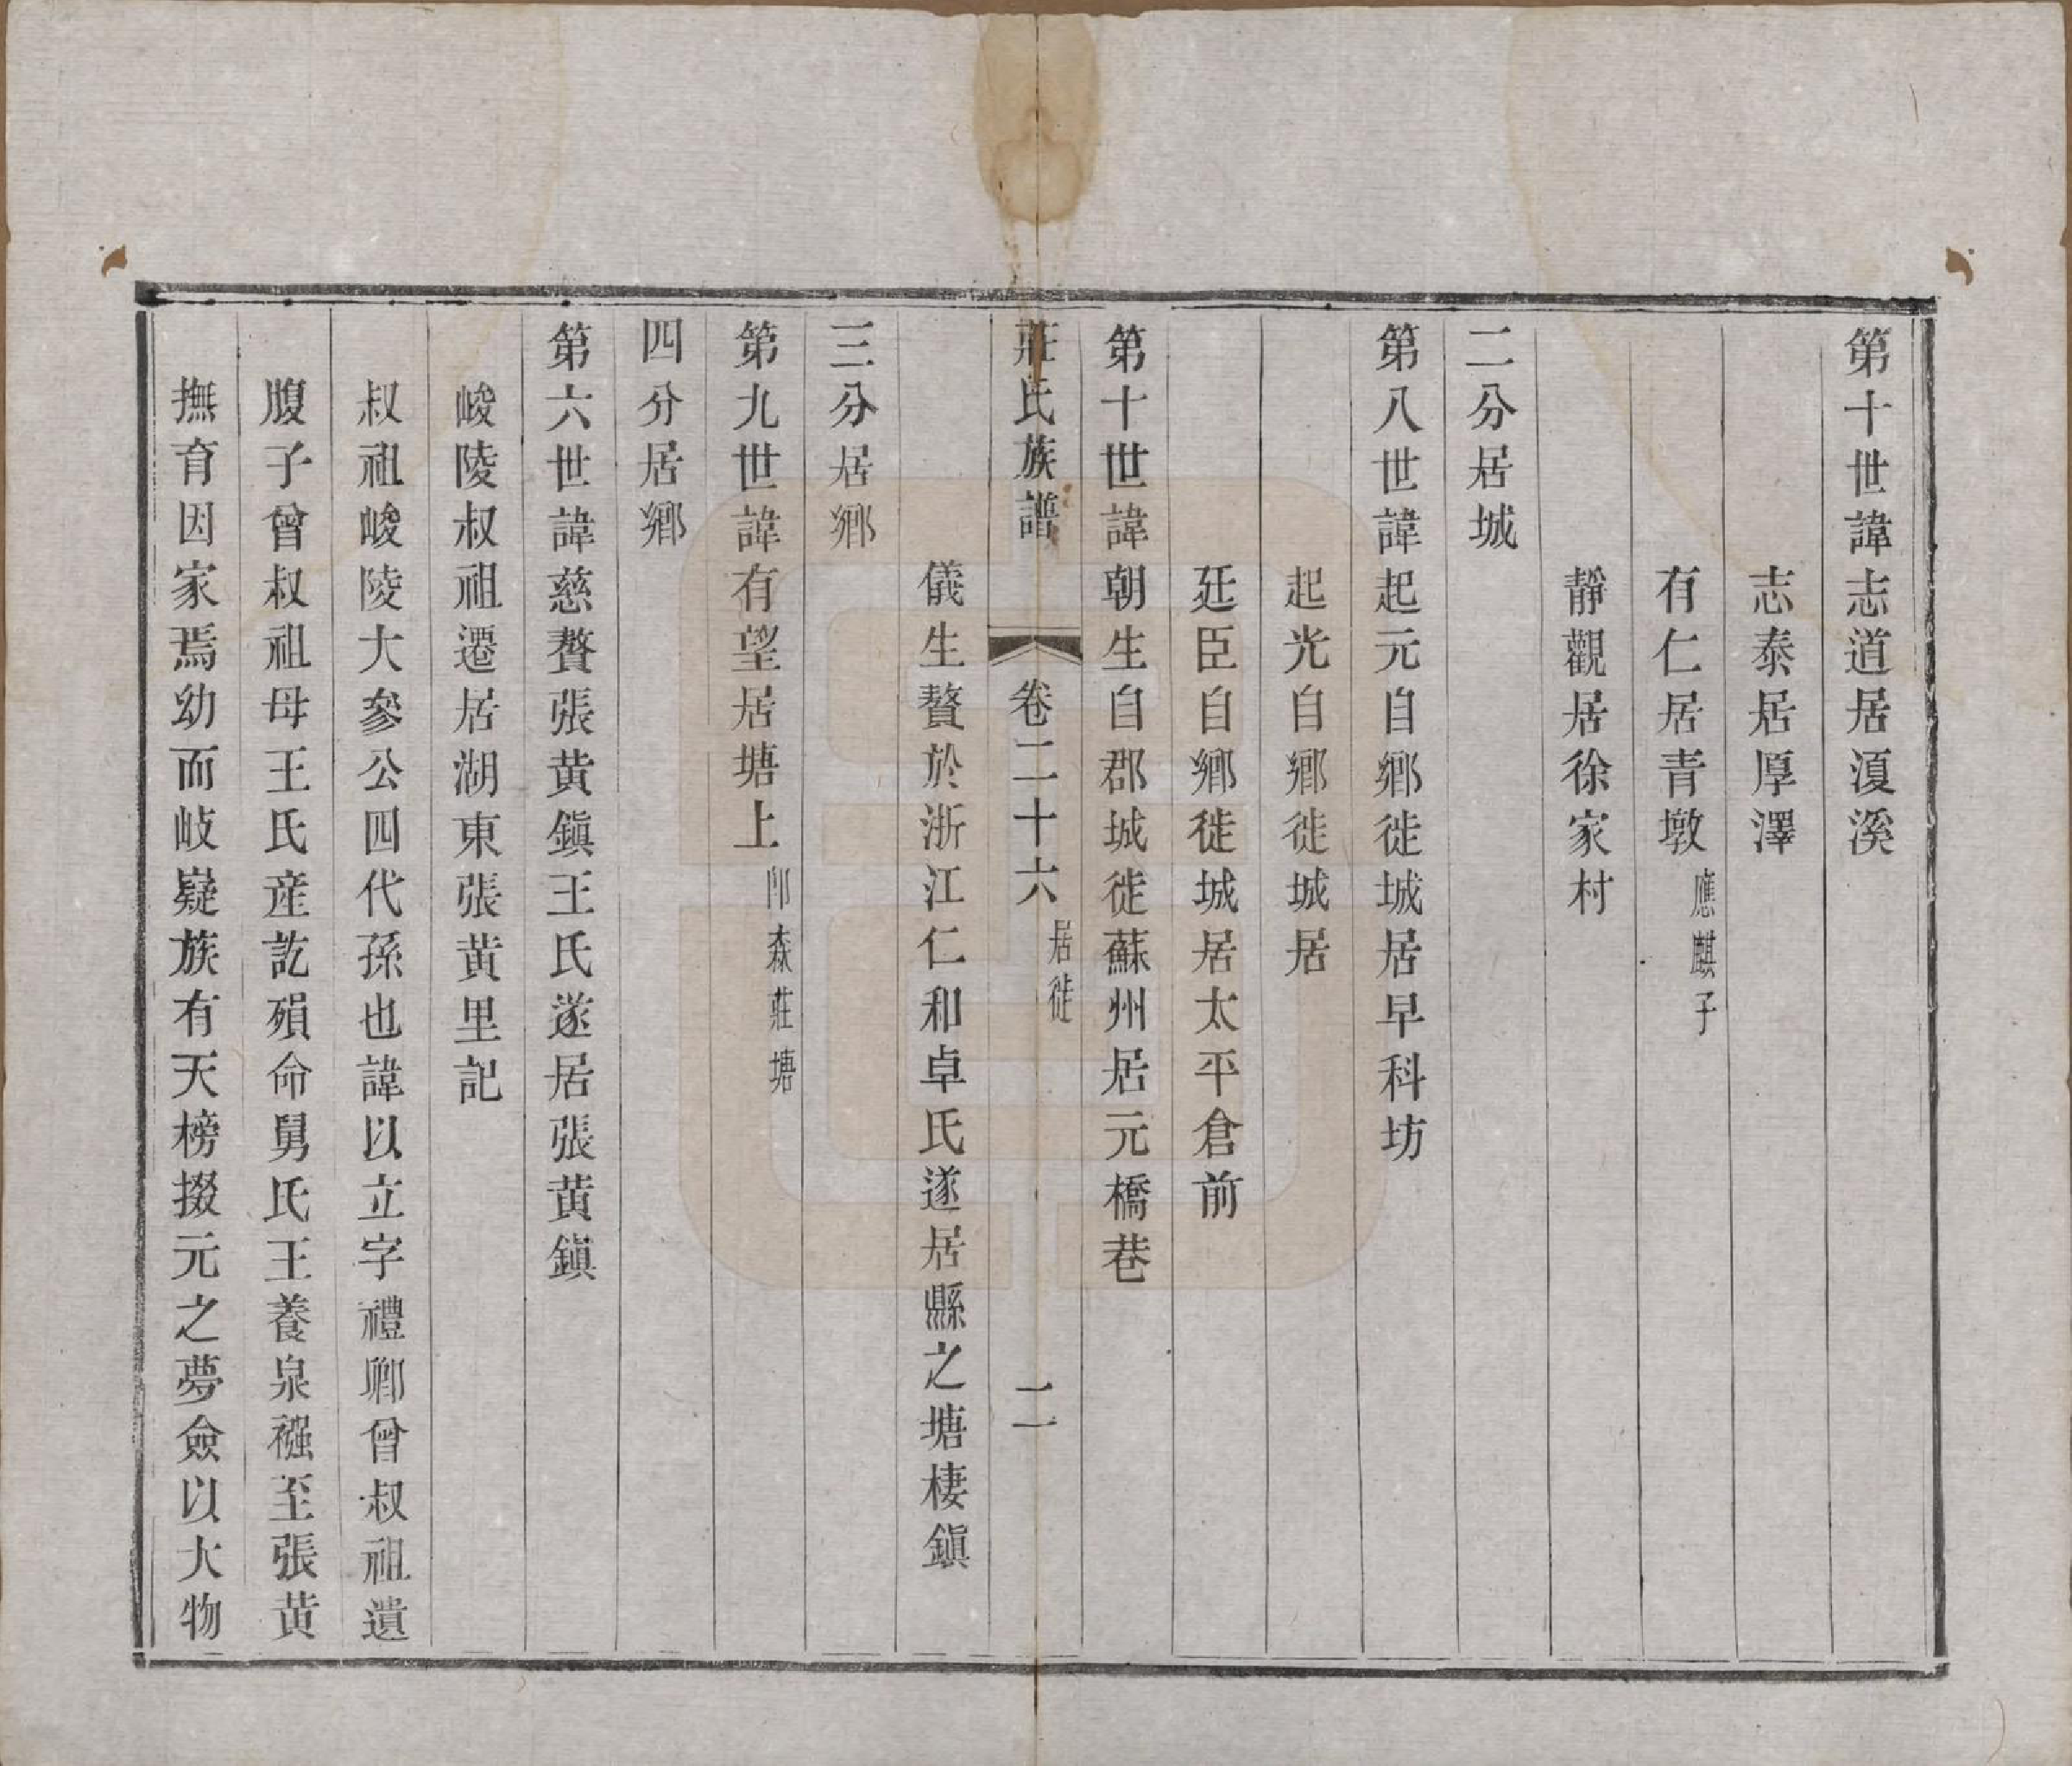 第十世諱志道居湏溪
志泰居厚澤
有仁居青墩應麒子
靜觀居徐家村
二分居城
第八世諱起元自鄉徙城居早科坊
起光自鄉徙城居
廷臣自鄉徙城居太平倉前
第十世諱朝生自郡城徙蘇州居元橋巷
莊氏族譜 卷二十六 居徙 二
儀生贅於浙江仁和卓氏遂居縣之塘棲鎭
三分居鄉
第九世諱有望居塘上卽森莊塘
四分居鄉
第六世諱慈贅張黃鎭王氏遂居張黃鎭
峻陵叔祖遷居湖東張黃里記
叔祖峻陵大參公四代孫也諱以立字禮卿曾叔祖遺
腹子曾叔祖母王氏產訖殞命舅氏王養泉襁至張黃
撫育因家焉幼而岐嶷族有天榜掇元之夢僉以大物